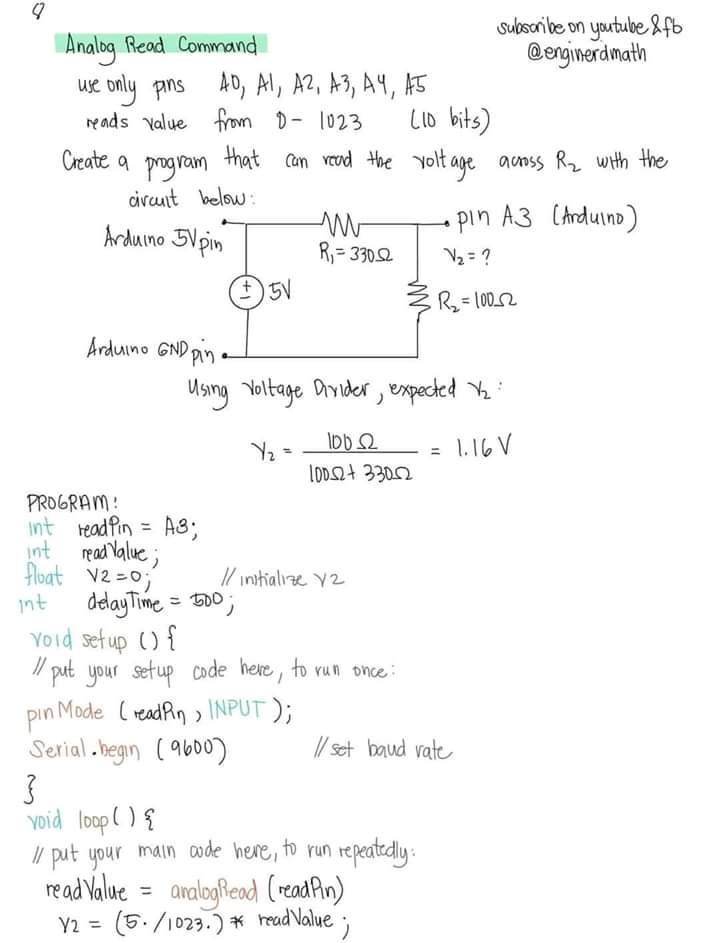 9
subscribe on youtube & fb
@enginerdmath
Analog Read Command
use only pins A0, A1, A2, A3, A4, A5
reads value from 0 - 1023 (10 bits)
Create a program that can read the voltage across R₂ with the
circuit below:
Arduino 5V pin
R₁ = 330Ω
pin A3 (Arduino)
V₂ = ?
+
-
5V
R₂ = 100Ω
Arduino GND pin
Using Voltage Divider, expected V₂ :
V₂ = 100Ω / 100Ω + 330Ω = 1.16 V
PROGRAM:
int readPin = A3;
int readValue;
float V2 = 0; // initialize V2
int delayTime = 500;
void setup () {
// put your setup code here, to run once:
pinMode (readPin, INPUT);
Serial.begin (9600) // set baud rate
}
void loop() {
// put your main code here, to run repeatedly:
readValue = analogRead (readPin)
V2 = (5./1023.) * readValue;